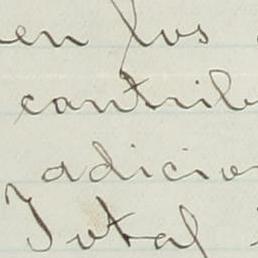 en los
contrib
adicio
Total